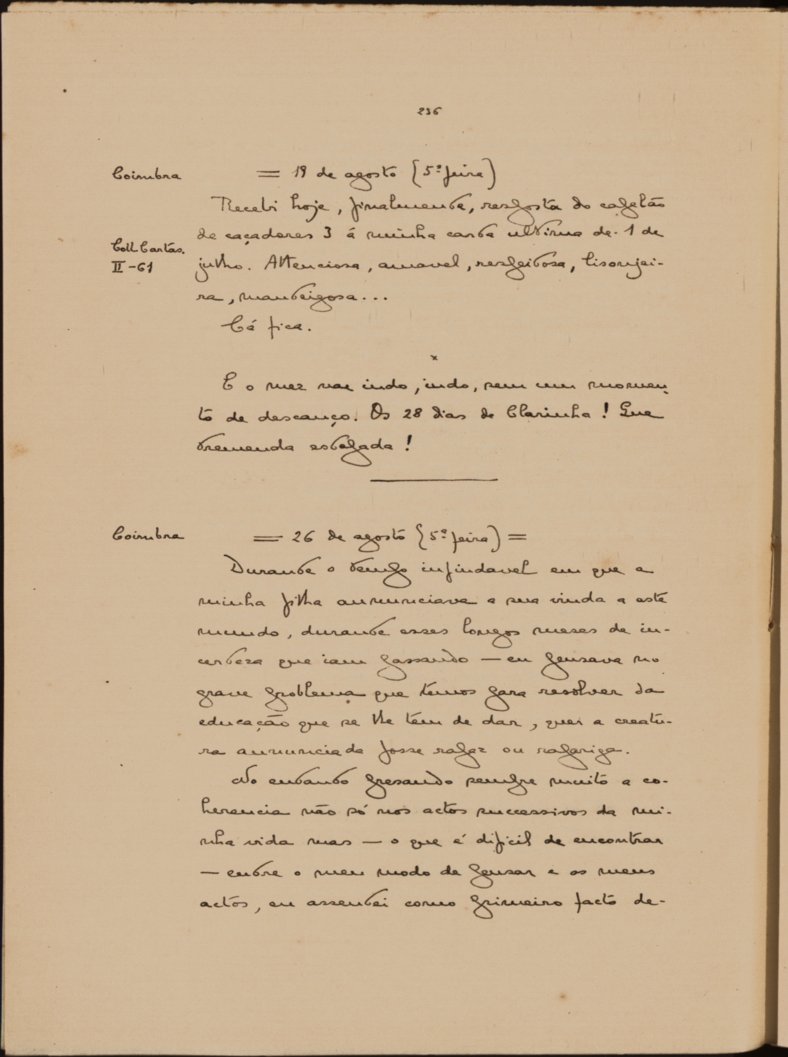 236
Coimbra = 19 de agosto (5ª feira)
Recebi hoje, finalmente, resposta do capelão
de caçadores 3 á minha carta ultima de 1 de
Coll. Cartas.
II-61
julho. Attenciosa, amavel, respeitosa, lisonjei-
ra, manteigosa...
Cá fica.
x
E o mez vae indo, indo, sem um momen-
to de descanço. Os 28 dias de Clarinha! Que
tremenda estopada!
Coimbra = 26 de agosto (5ª feira) =
Durante o tempo infindavel em que a
minha filha annunciava a sua vinda a este
mundo, durante esses longos meses de in-
certeza que iam passando — eu pensava no
grave problema que temos para resolver da
educação que se lhe tem de dar, quer a creatu-
ra annunciada fosse rapaz ou rapariga.
No entanto presando sempre muito a co-
herencia não só nos actos successivos da mi-
nha vida mas — o que é dificil de encontrar
— entre o meu modo de pensar e os meus
actos, eu assentei como primeiro facto de-